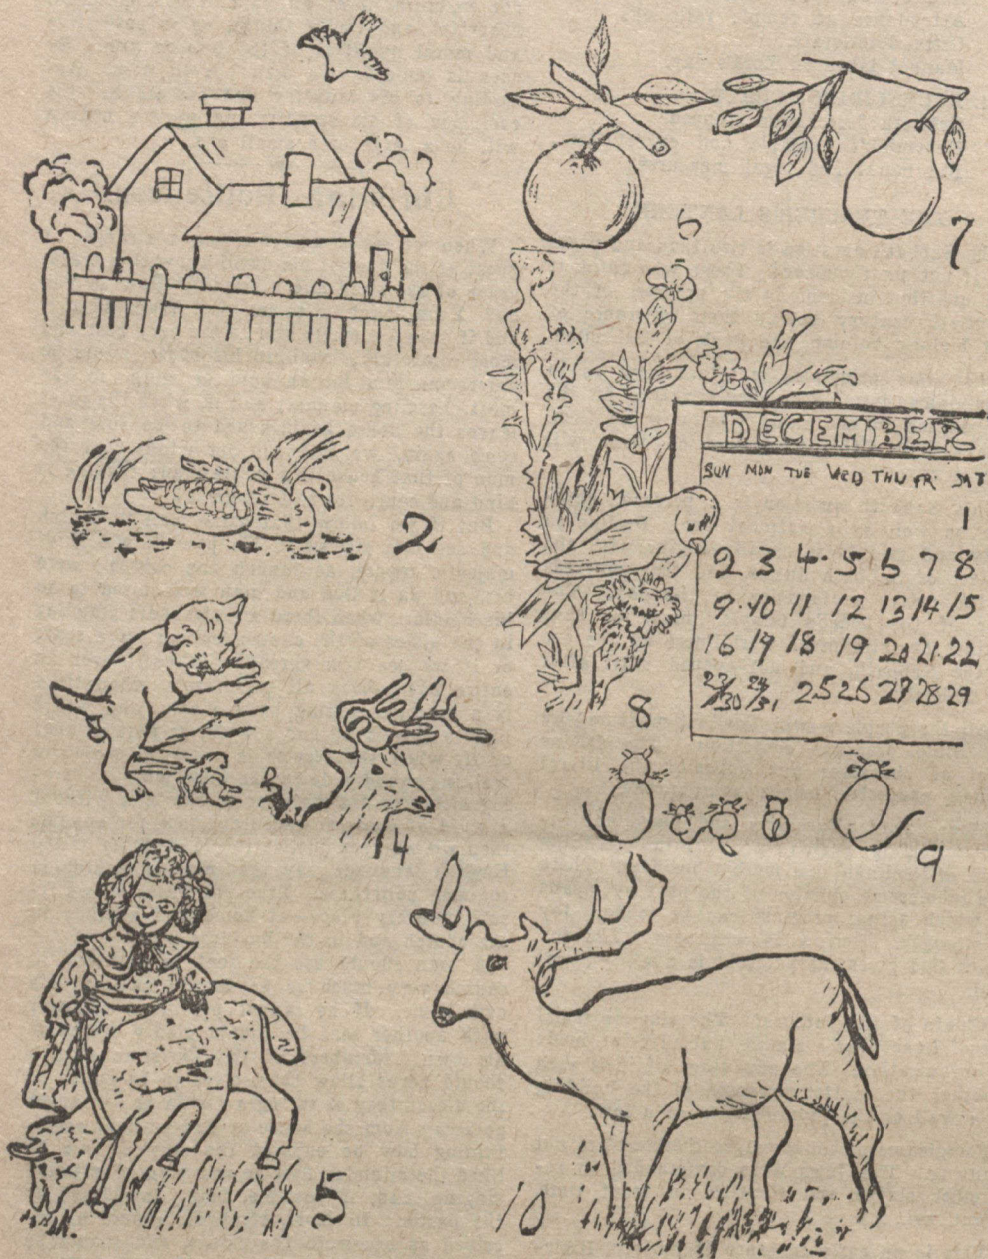 6
7
DECEMBER
SUN MON TUE WED THU FR SAT
1
2 3 4 5 6 7 8
9 10 11 12 13 14 15
16 19 18 19 20 21 22
23/30 24/31 25 26 27 28 29
2
8
4
9
5
10